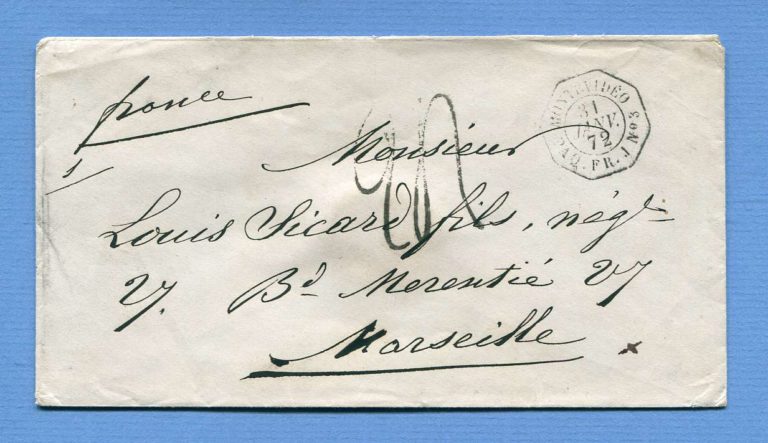 france
MONTEVIDÉO
31
JANV.
72
PAQ. FR. J Nº3
1
Monsieur
Louis Sicard fils, négt
27. Bd Merentié 27
Marseille